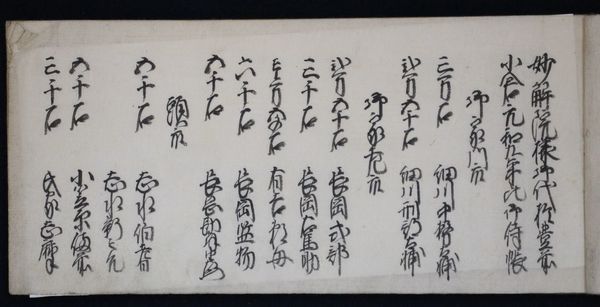 妙解院様御代於豊前
小倉元和九年之御侍帳
御家門衆
三万石 細川中務少輔
弐万五千石 細川刑部少輔
御家老衆
弐万五千石 長岡式部
三千石 長岡右馬助
壱万五千石 有吉頼母
六千石 長岡監物
五千石 長岡勘解由
頭衆
五千石 志水伯耆
志水新之允
五千石 小笠原備前
三千石 氏家志摩